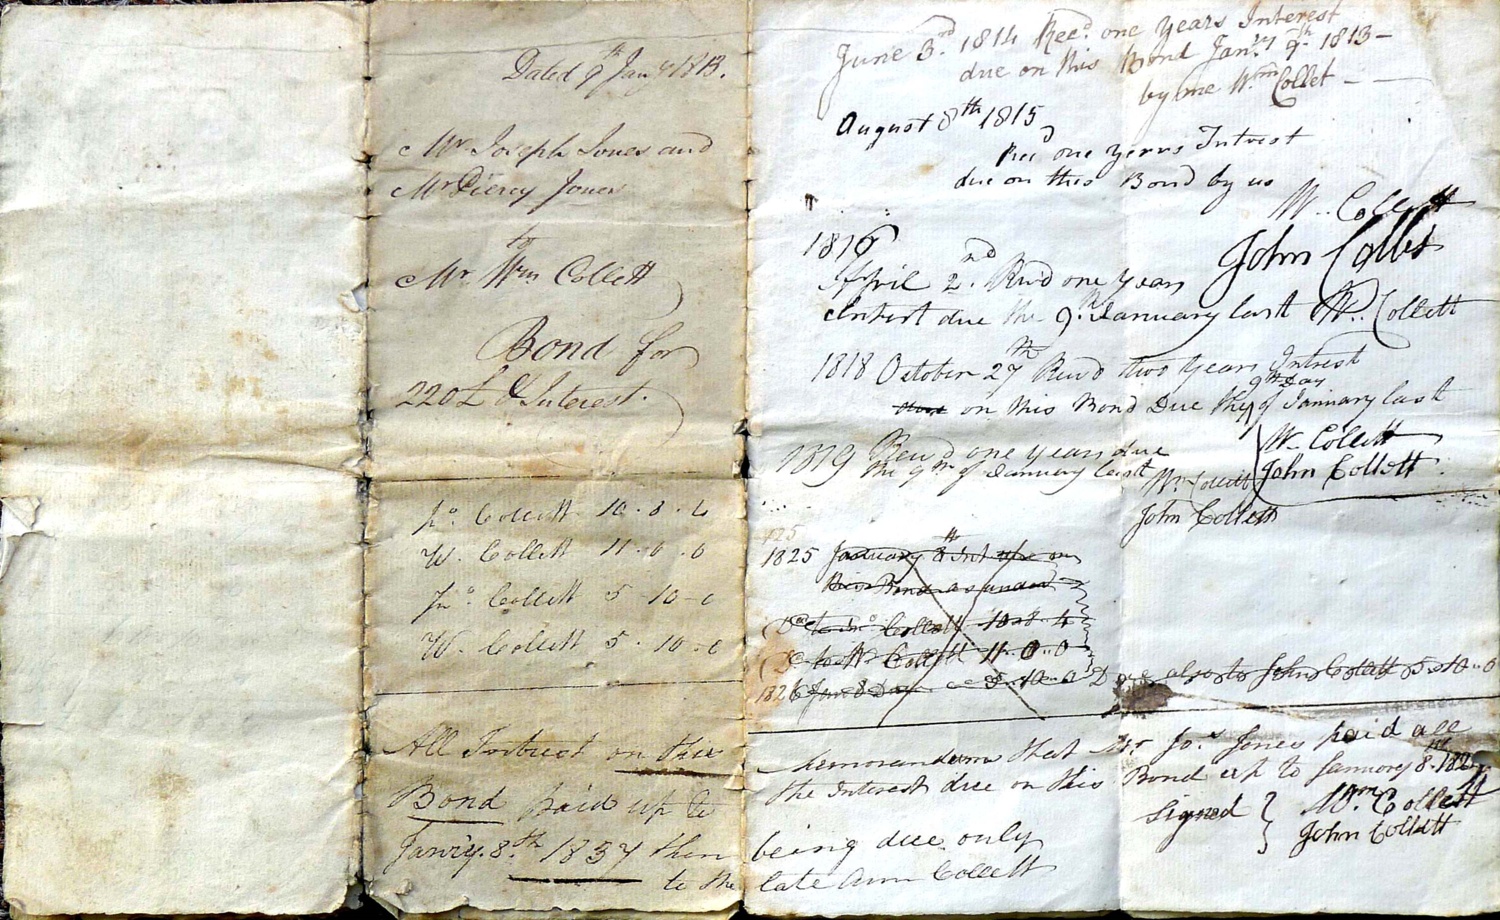 Dated 9th Jany 1813.
Mr Joseph Jones and
Mr Piercy Jones
to
Mr. Wm Collett
Bond for
220£ & Interest.
Jno. Collett 10 . 8 . 4
W. Collett 11 . 0 . 0
Jno. Collett 5 - 10 - 0
W. Collett 5 . 10 . 0
All Interest on this
Bond paid up to
Jan'y. 8th 1837 then
to the
June 3rd. 1814 Recd. one years Interest
due on this Bond Janry 9th. 1813 -
by me Wm Collet -
August 8th 1815
Recd one years Intrest
due on this Bond by us
W. Collett
John Collett
1816
April 2nd. Reivd one years
Intrest due the 9th January last W. Collett
1818 October 27th Reivd two years Intrest
on this Bond Due the 9th Day of January last
W. Collett
John Collett
1819 Reivd one years due
the 9th of January last
Wm Collett
John Collett
1825
1825 January 8th Int due on
this Bond as under
Do to Jno Collett 10 8 4
Do to W Collett 11..0..0
1826 Jan 8 Day 5..10..0 Due also to John Collett 5..10..0
Memorandum that Mr Jos. Jones paid all
the Interest due on this Bond up to January 8th
Signed Wm Collett
John Collett
being due only
late Ann Collett